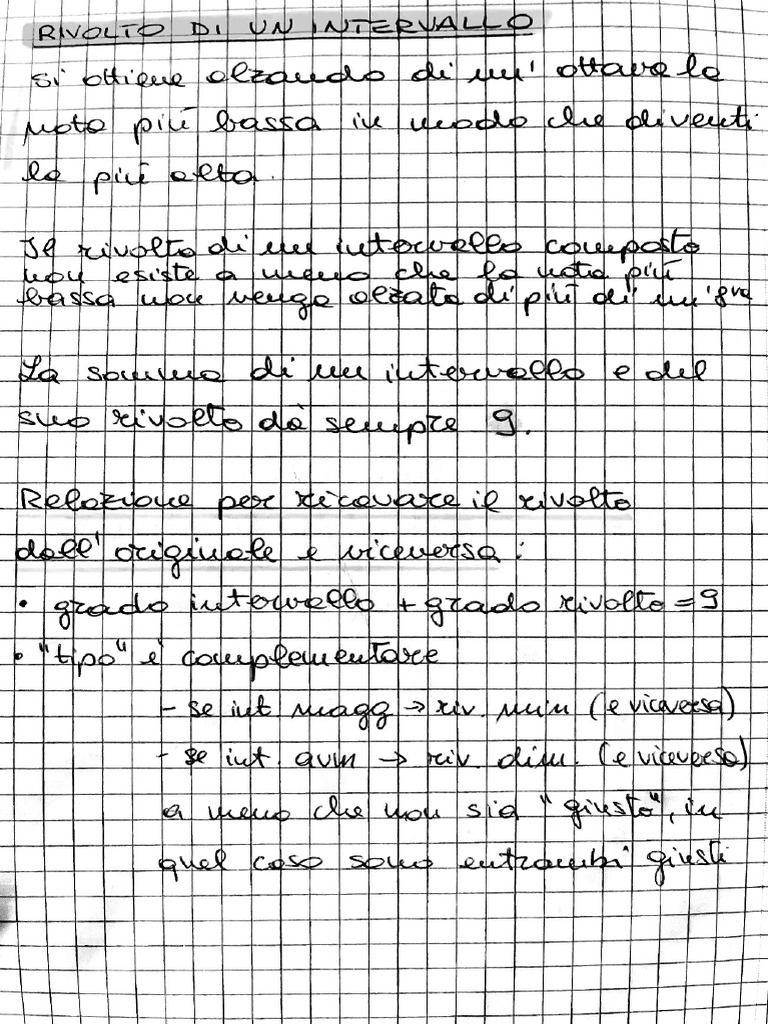 RIVOLTO DI UN INTERVALLO
si ottiene alzando di un' ottava la
nota più bassa in modo che diventi
la più alta.
Il rivolto di un intervallo composto
non esiste a meno che la nota più
bassa non venga alzata di più di un'8va
La somma di un intervallo e del
suo rivolto dà sempre 9.
Relazione per ricavare il rivolto
dall'originale e viceversa:
• grado intervallo + grado rivolto = 9
• "tipo" e' complementare
- se int. magg → riv. min (e viceversa)
- se int. aum → riv. dim. (e viceversa)
a meno che non sia "giusto", in
quel caso sono entrambi giusti